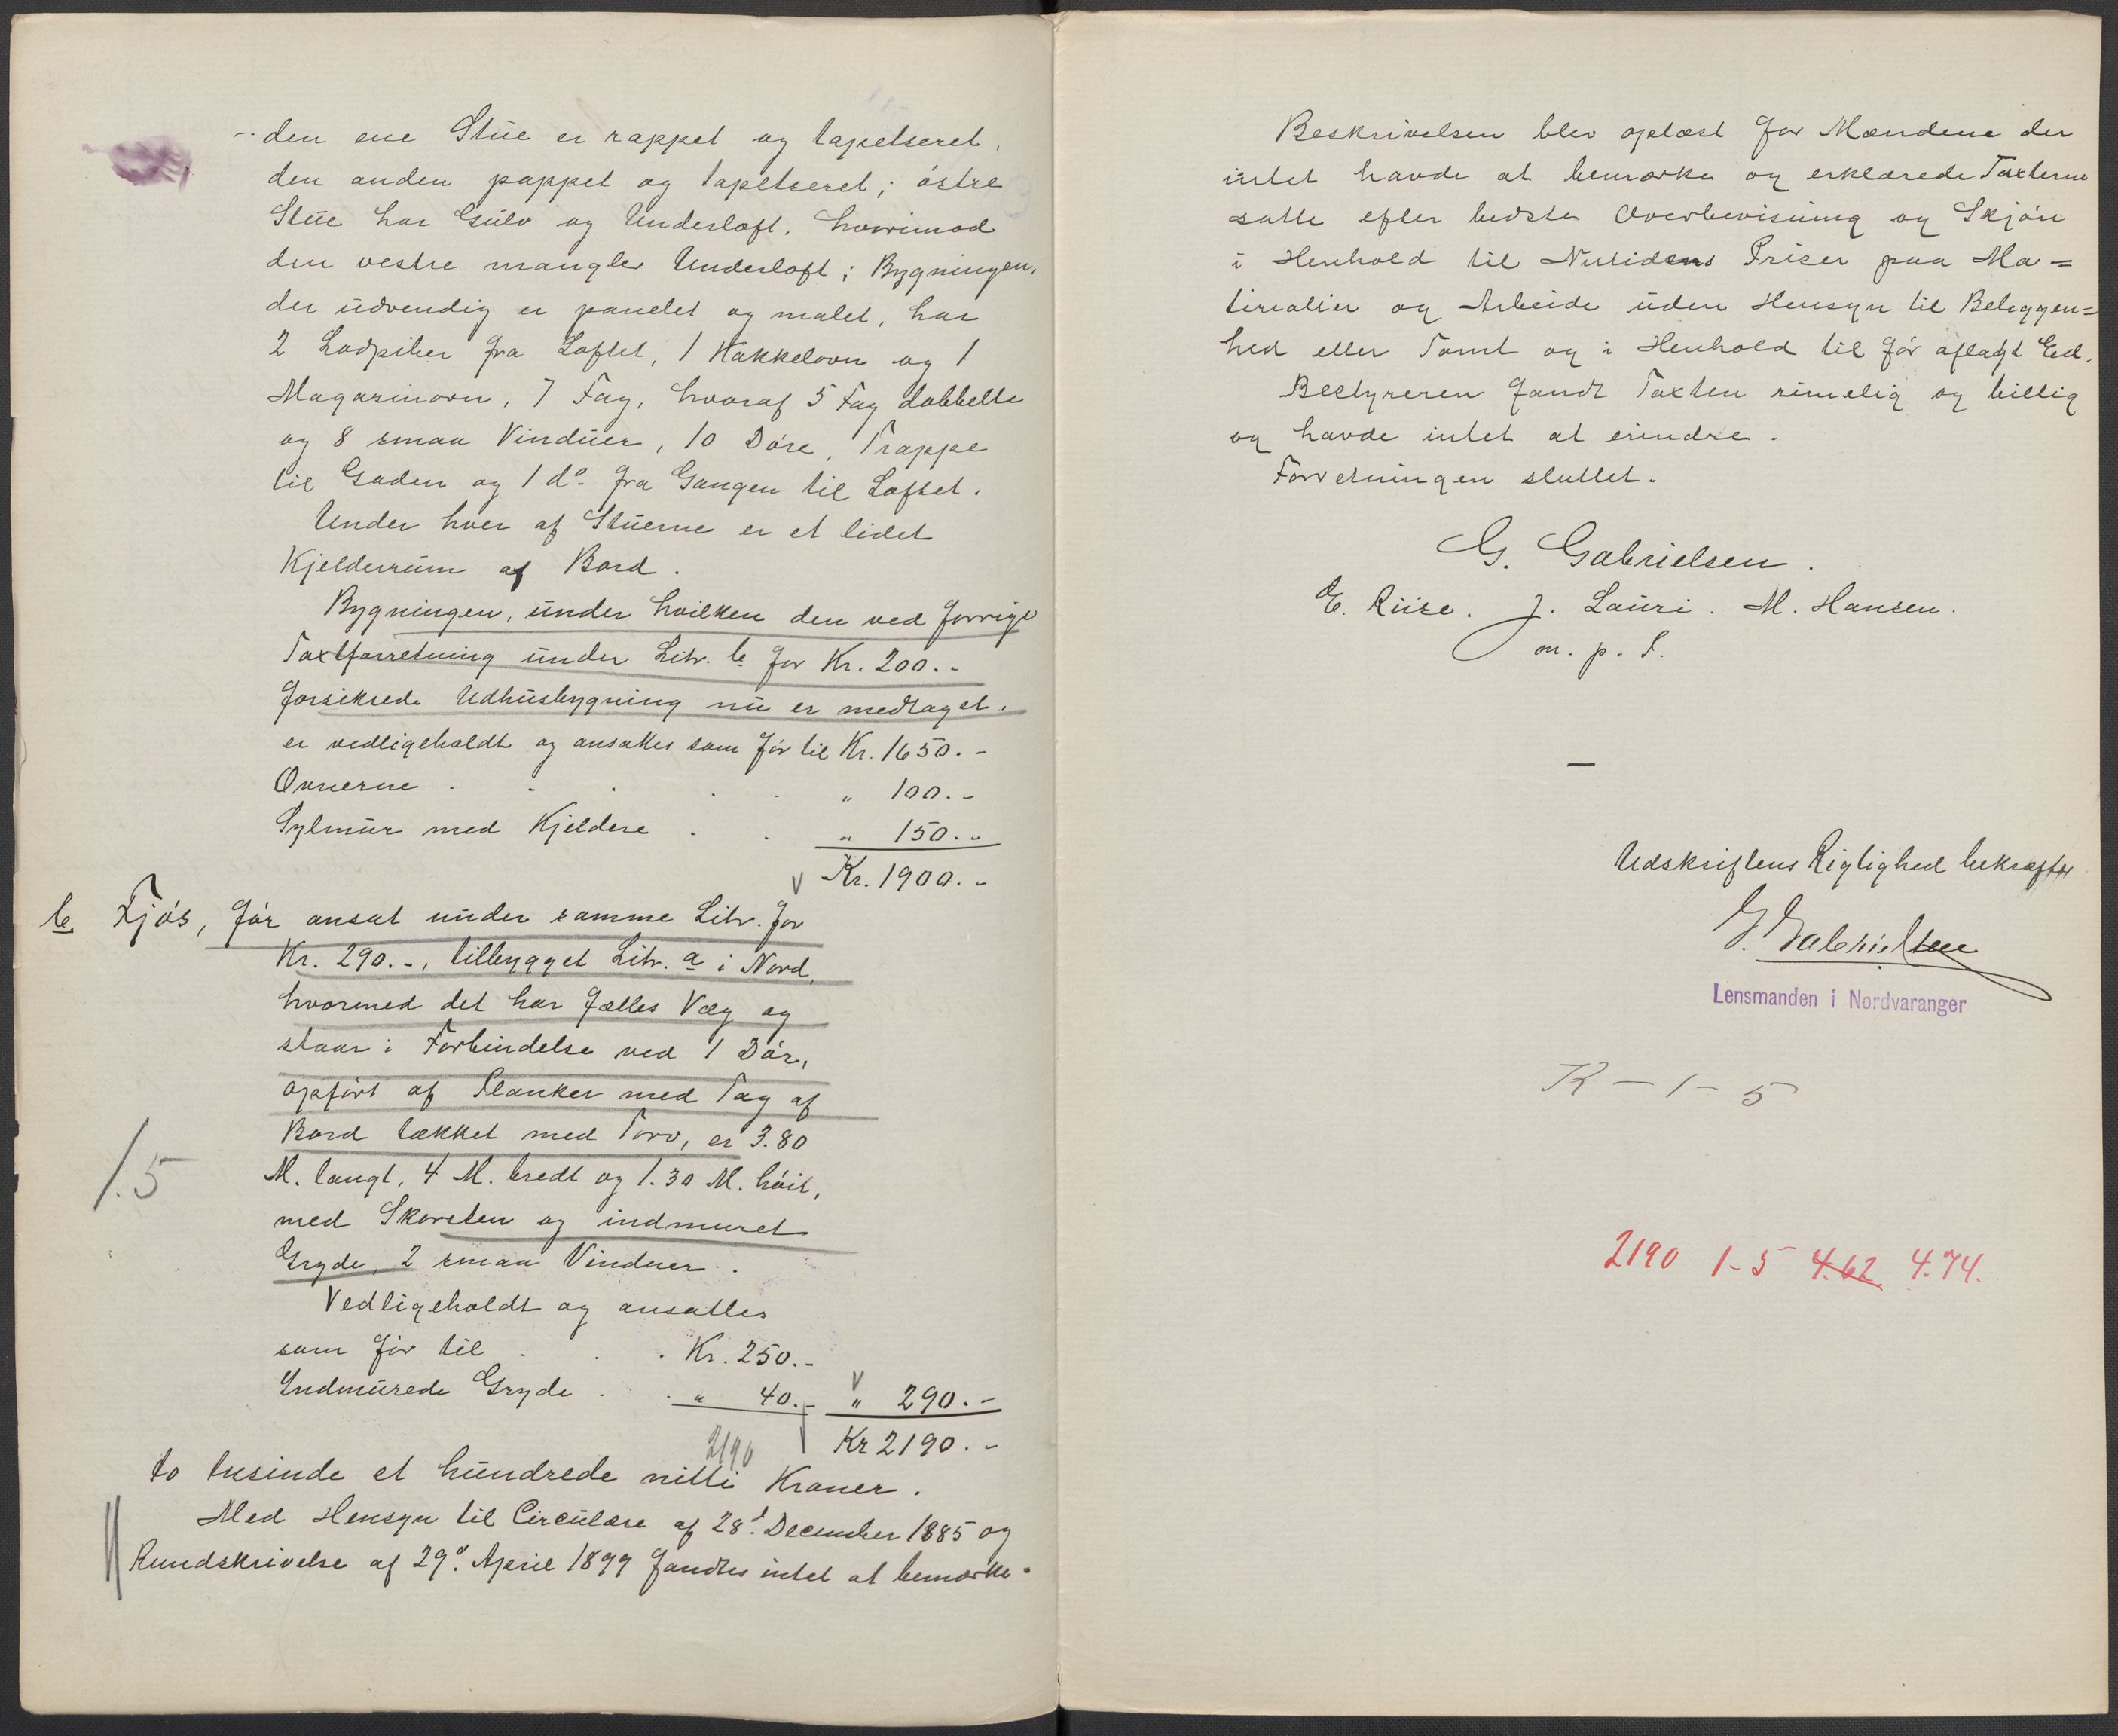 den ene Stue er rappet og tapetseret,
den anden pappet og tapetseret; østre
Stue har Gulv og Underloft, hvorimod
den vestre mangler Underloft; Bygningen,
der udvendig er panelet og malet, har
2 Ludpiber fra Loftet, 1 Kakkelovn og 1
Magasinovn, 7 Fag, hvoraf 5 Fag dobbelte
og 8 smaa Vinduer, 10 Døre, Trappe
til Gaden og 1 do. fra Gangen til Loftet.
Under hver af Stuerne er et lidet
Kjelderrum af Bord.
Bygningen, under hvilken den ved forrige
Taxtforretning under Litr. b for Kr. 200.-
forsikrede Udhusbygning nu er medtaget,
er vedligeholdt og ansattes som før til Kr. 1650.-
Ovnerne . . . . . " 100.-
Sylmur med Kjeldere . . " 150.-
Kr. 1900.-
b Fjøs, før ansat under samme Litr. for
Kr. 290.-, tilbygget Litr. a i Nord,
hvormed det har fælles Væg og
staar i Forbindelse ved 1 Dør,
opført af Planker med Tag af
Bord tækket med Torv, er 3.80
1.5
M. langt, 4 M. bredt og 1.30 M. høit,
med Skorsten og indmuret
Gryde, 2 smaa Vinduer.
Vedligeholdt og ansattes
som før til . . . Kr. 250.-
Indmurede Gryde . . " 40.- " 290.-
2190 Kr 2190.-
to tusinde et hundrede nitti Kroner.
Med Hensyn til Circulære af 28d. December 1885 og
Rundskrivelse af 29d. April 1899 fandtes intet at bemærke.
Beskrivelsen blev oplæst for Mændene der
intet havde at bemærke og erklærede Taxterne
satte efter bedste Overbevisning og Skjøn
i Henhold til Nutidens Priser paa Ma=
terialier og Arbeide uden Hensyn til Beliggen=
hed eller Tomt og i Henhold til før aflagt Ed.
Bestyreren fandt Taxten rimelig og billig
og havde intet at erindre.
Forretningen sluttet.
G. Gabrielsen.
E. Riise. J. Lauri. M. Hansen.
m. p. P.
Udskriftens Rigtighed bekræfter
G. Gabrielsen
Lensmanden i Nordvaranger
R - 1 - 5
2190 1-5 4.62 4.74.